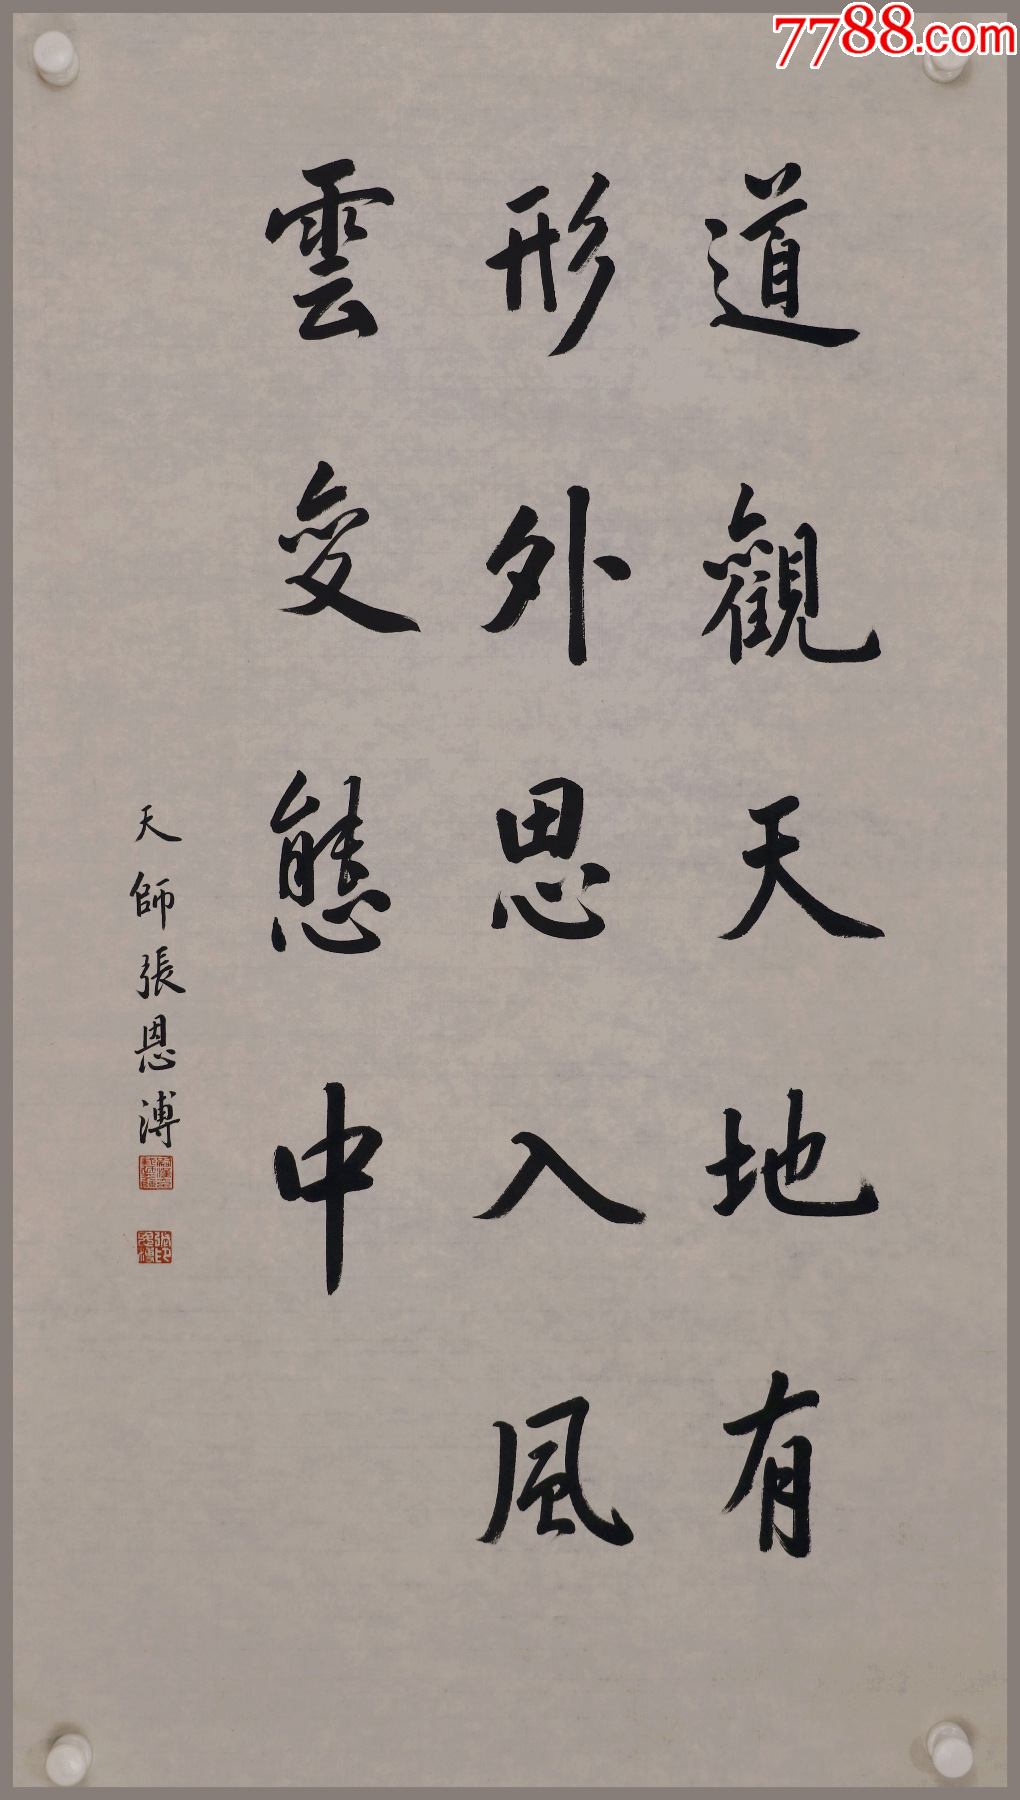 7788.com
道觀天地有
形外思入風
雲變態中
天師張恩溥